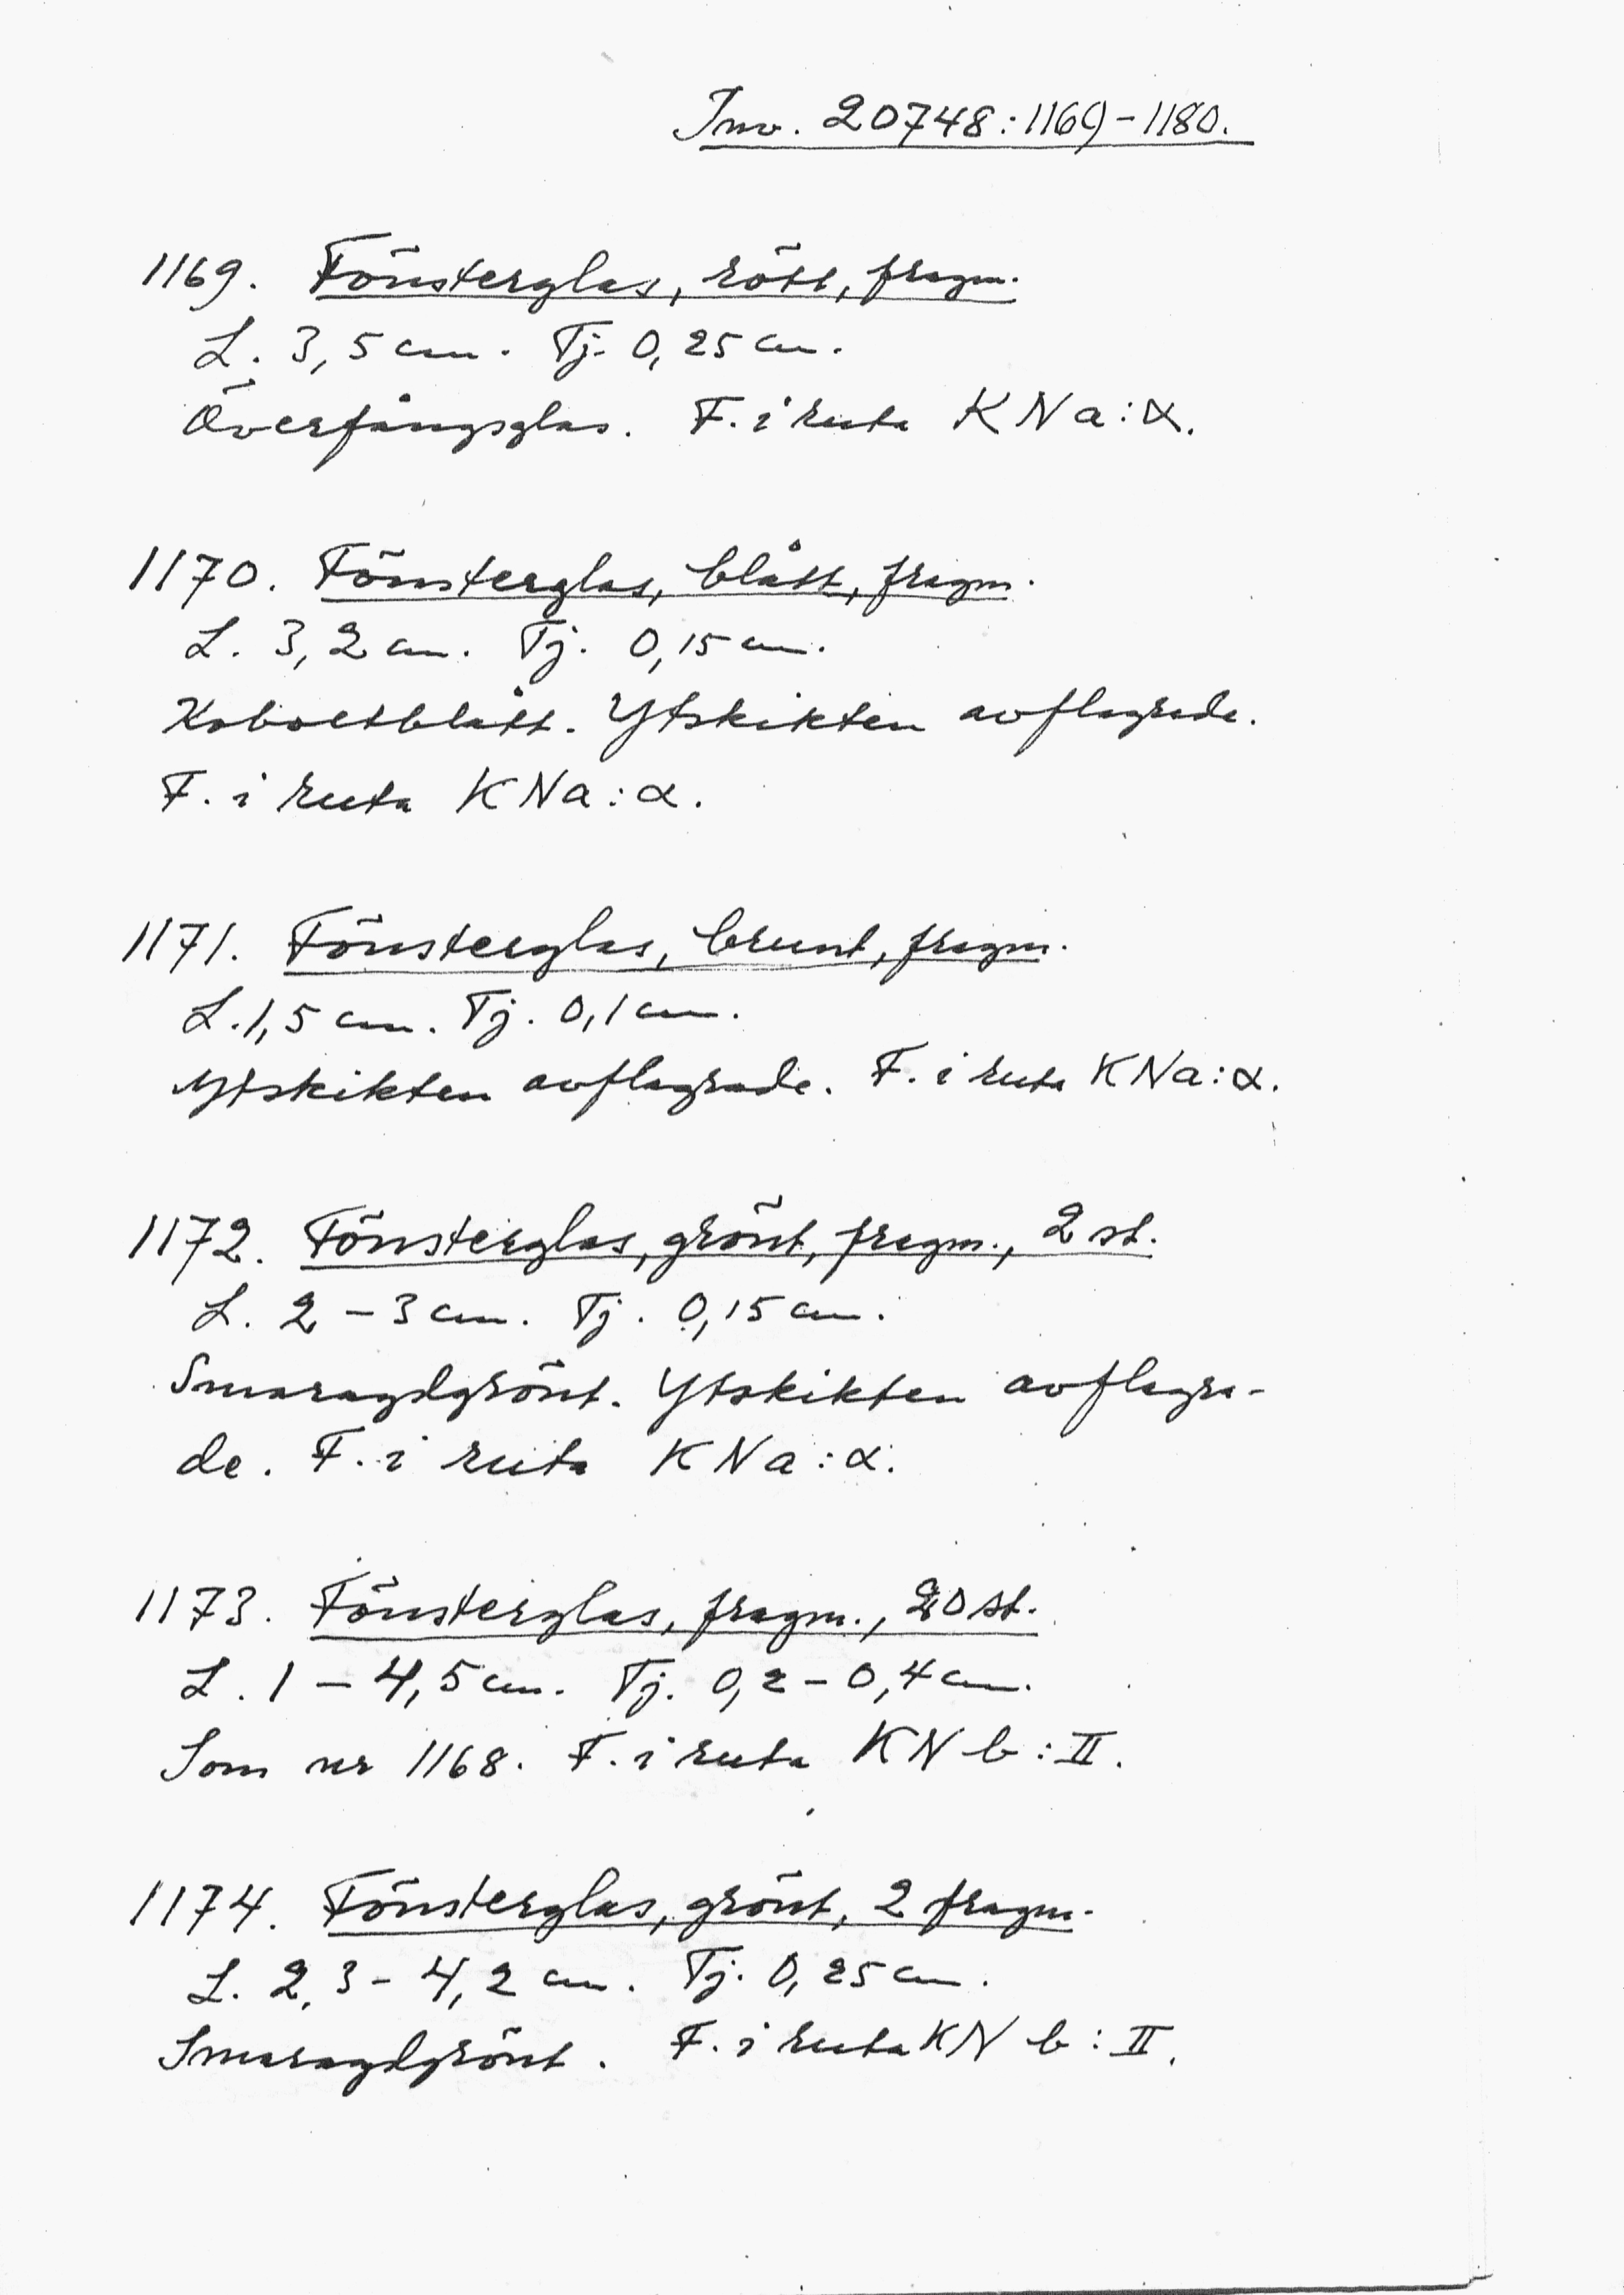 Inv. 20748:1169-1180.
1169. Fönsterglas, rött, fragm.
L. 3,5 cm. Tj. 0,25 cm.
Överfångsglas. F. i ruta KNa:α.
1170. Fönsterglas, blått, fragm.
L. 3,2 cm. Tj. 0,15 cm.
Koboltblått. Ytskikten avflagrade.
F. i ruta KNa:α.
1171. Fönsterglas, brunt, fragm.
L. 1,5 cm. Tj. 0,1 cm.
Ytskikten avflagrade. F. i ruta KNa:α.
1172. Fönsterglas, grönt, fragm., 2 st.
L. 2-3 cm. Tj. 0,15 cm.
Smaragdgrönt. Ytskikten avflagra-
de. F. i ruta KNa:α.
1173. Fönsterglas, fragm., 20 st.
L. 1-4,5 cm. Tj. 0,2-0,4 cm.
Som nr 1168. F. i ruta KN b:II.
1174. Fönsterglas, grönt, 2 fragm.
L. 2,3-4,2 cm. Tj. 0,25 cm.
Smaragdgrönt. F. i ruta KN b:II.